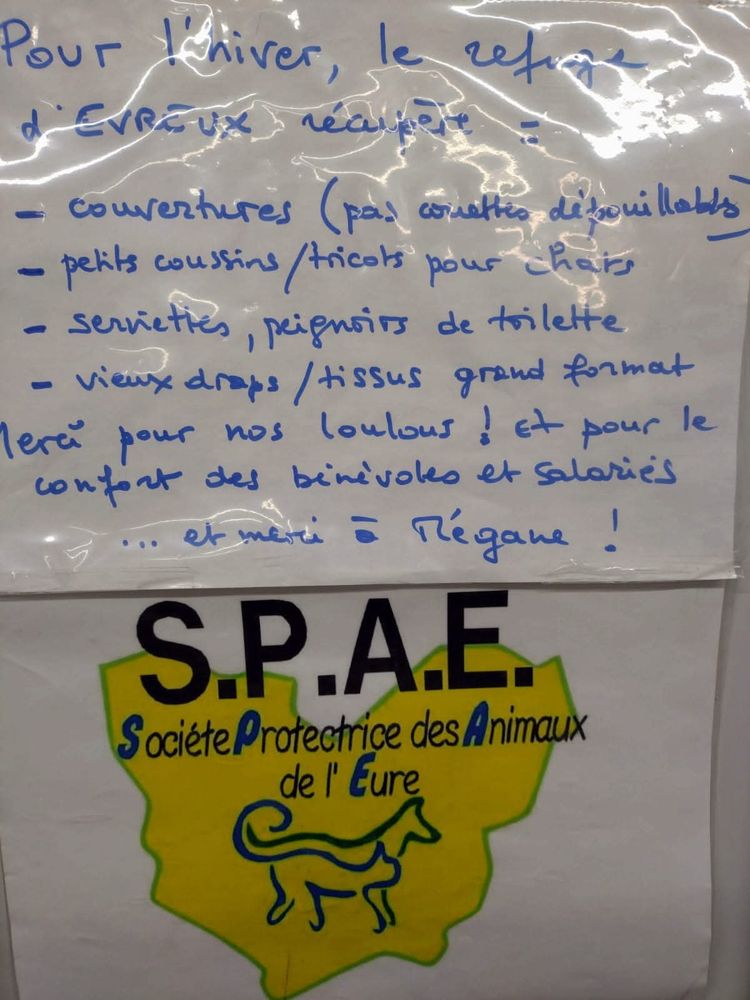 Pour l'hiver, le refuge
d'EVREUX récupère :
- couvertures (pas couettes dépouillables)
- petits coussins/tricots pour chats
- serviettes, peignoirs de toilette
- vieux draps/tissus grand format
Merci pour nos loulous ! Et pour le
confort des bénévoles et salariés
... et merci à Mégane !
S.P.A.E.
Sociéte Protectrice des Animaux
de l'Eure